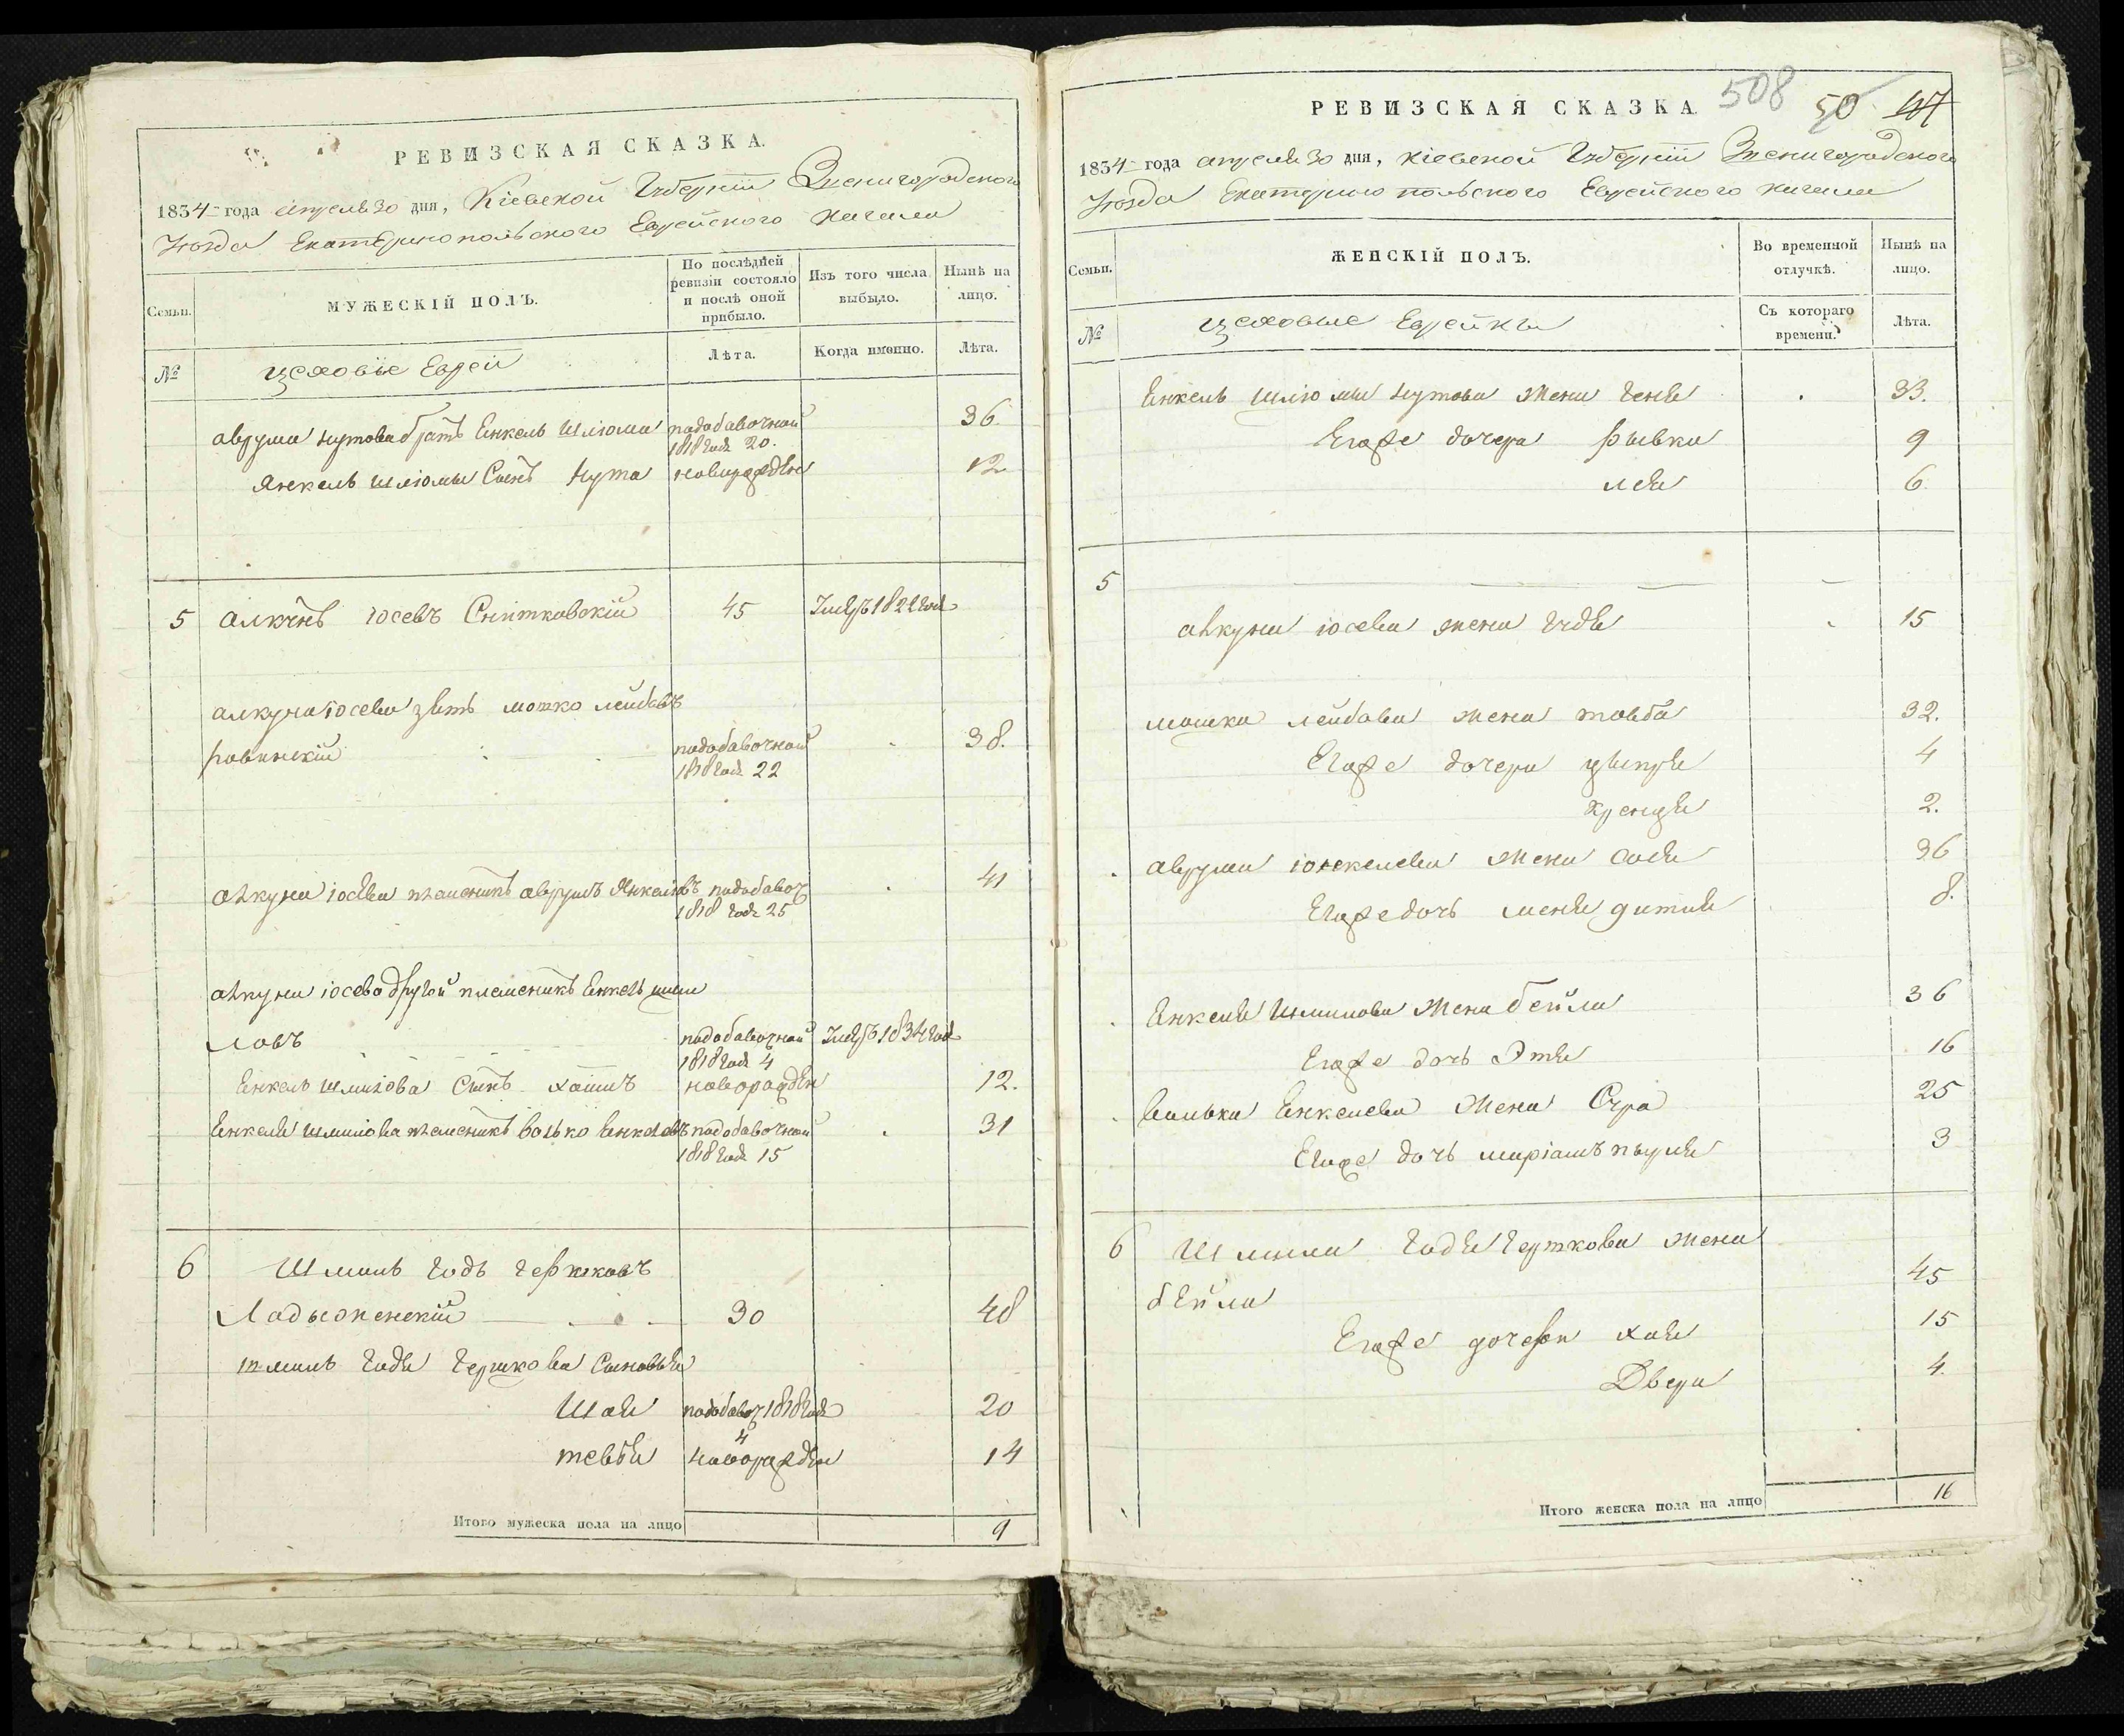 РЕВИЗСКАЯ СКАЗКА.
1834 года апреля 30 дня, Кіевской Губерніи Звенигородского
уѣзда Екатеринопольского Еврейского кагала
Семьи.
МУЖЕСКІЙ ПОЛЪ.
По послѣдней ревизіи состояло и послѣ оной прибыло.
Изъ того числа выбыло.
Нынѣ на лицо.
№
цеховіе Евреи
Лѣта.
Когда именно.
Лѣта.
аврума нутова братъ Енкель Шлюма подобавочной 36.
1818 года 20.
Янкель шлюмы Сынъ Нута новорожден 12
5 алкунъ іосевъ Снитковскій 45 умеръ 1822 года
алкуна іосева зять мошко лейбовъ
ровинскій подобавочной 38.
1818 года 22
алкуна іосева племеникъ аврумъ Янкелевъ подобавоч 41
1818 года 25
алкуна іосева другой племеникъ Енкель шми
ловъ подобавочной умеръ 1834 года
1818 года 4
Енкель шмилова Сынъ хаимъ новорожден 12.
Енкеля шмилова племеникъ волько Енкелевъ подобавочной 31
1818 года 15
6 Шмиль Годь гершковъ
Ладыженскій 30 48
шмиль Годя гершкова Сыновья
Шая подобавоч 1818 года 20
4
тевья новорожден 14
Итого мужеска пола на лицо 9
РЕВИЗСКАЯ СКАЗКА. 508 50 107
1834 года апреля 30 дня, Кіевской Губерніи Звенигородского
уѣзда Екатеринопольского Еврейского кагала
Семьи.
ЖЕНСКІЙ ПОЛЪ.
Во временной отлучкѣ.
Нынѣ на лицо.
№
цеховые Еврейки
Съ котораго времени.
Лѣта.
Енкель шлюмы нутова жена геня 33.
Егоже дочери рывка 9
лея 6
5
алкуна іосева жена Гудя 15
мошка лейбова жена товба 32.
Егоже дочери ципря 4
хренця 2.
аврума юнкелева жена сося 36
Егоже дочь меня дитля 8.
Енкеля Шмилова жена бейла 36
Егоже дочь Этя 16
волька Енкелева жена Сура 25
Егоже дочь маріамъ перля 3
6 Шмиля Годя гершкова жена
бейла 45
Егоже дочери хая 15
Двера 4.
Итого женска пола на лицо 16